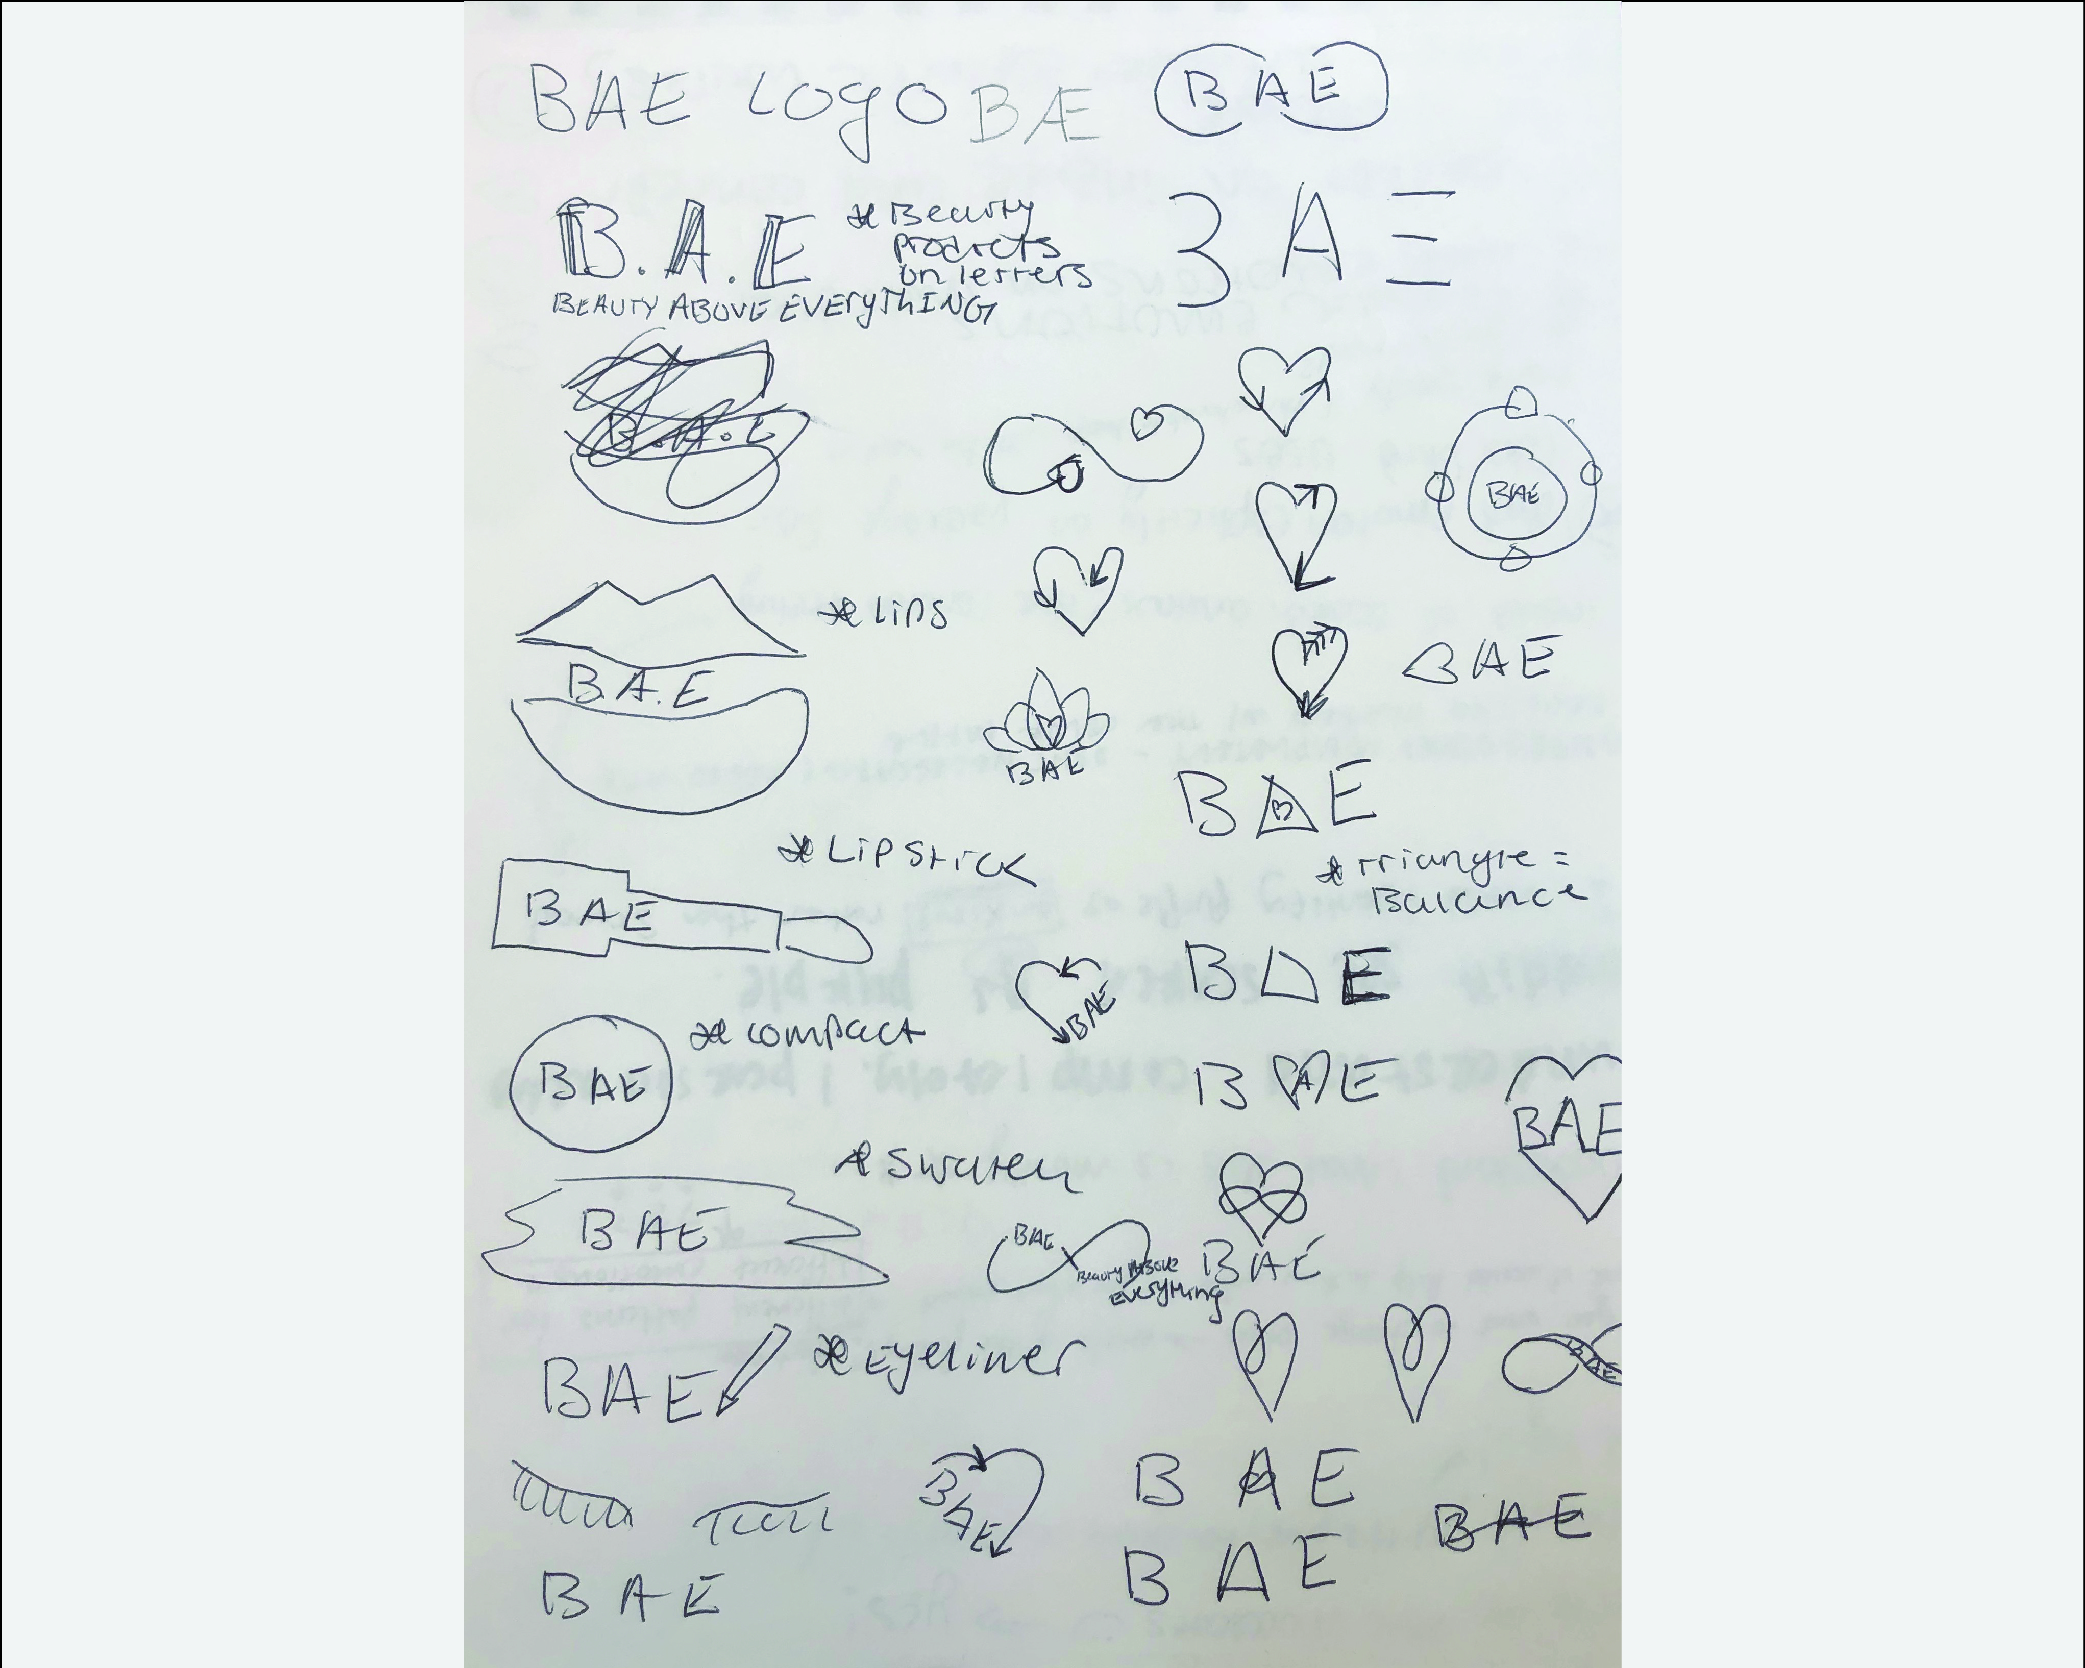 BAE LOGO BÆ BAE
B.A.E
* Beauty
products
on letters
BAE
BEAUTY ABOVE EVERYTHING
B.A.E
BAE
* Lips
B.A.E
BAE
BAE
BAE
* Lipstick
* Triangle =
Balance
BAE
BAE
BAE
* compact
BAE
BAE
BAE
* swatch
BAE
BAE
Beauty Above
Everything
BAE
* Eyeliner
BAE
BAE
BAE
BAE
BAE
BAE
BAE